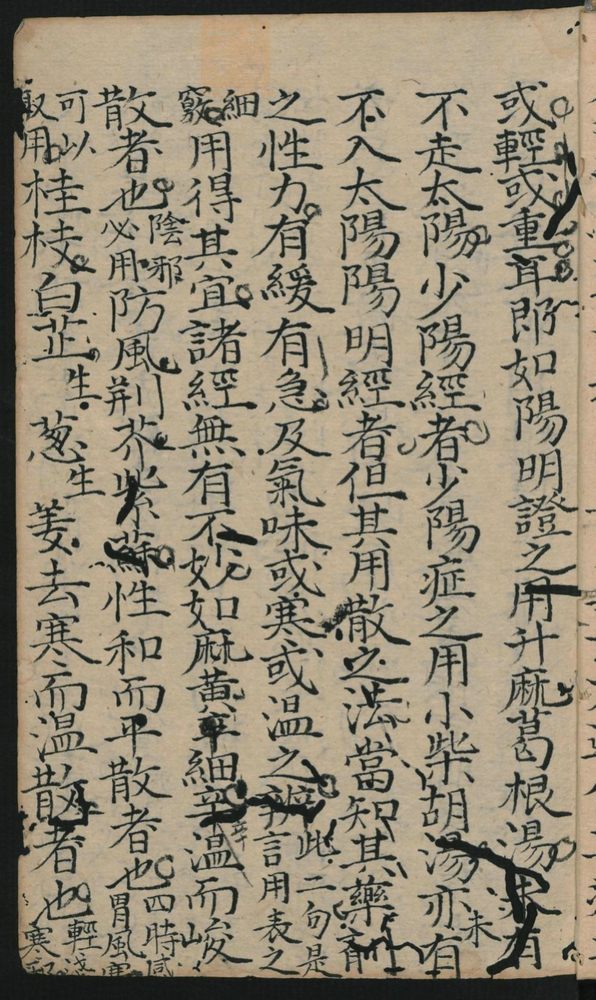 或輕或重耳即如陽明證之用升麻葛根湯未有
不走太陽少陽經者少陽症之用小柴胡湯亦未有
不入太陽陽明經者但其用散之法當知其藥
之性力有緩有急及氣味或寒或温之辨此二句是言用表之
細竅用得其宜諸經無有不妙如麻黃細辛温而峻
散者也陰邪必用防風荆芥紫蘇性和而平散者也四時感冒風寒
可以取用桂枝白芷生葱生姜去寒而温散者也輕淺寒